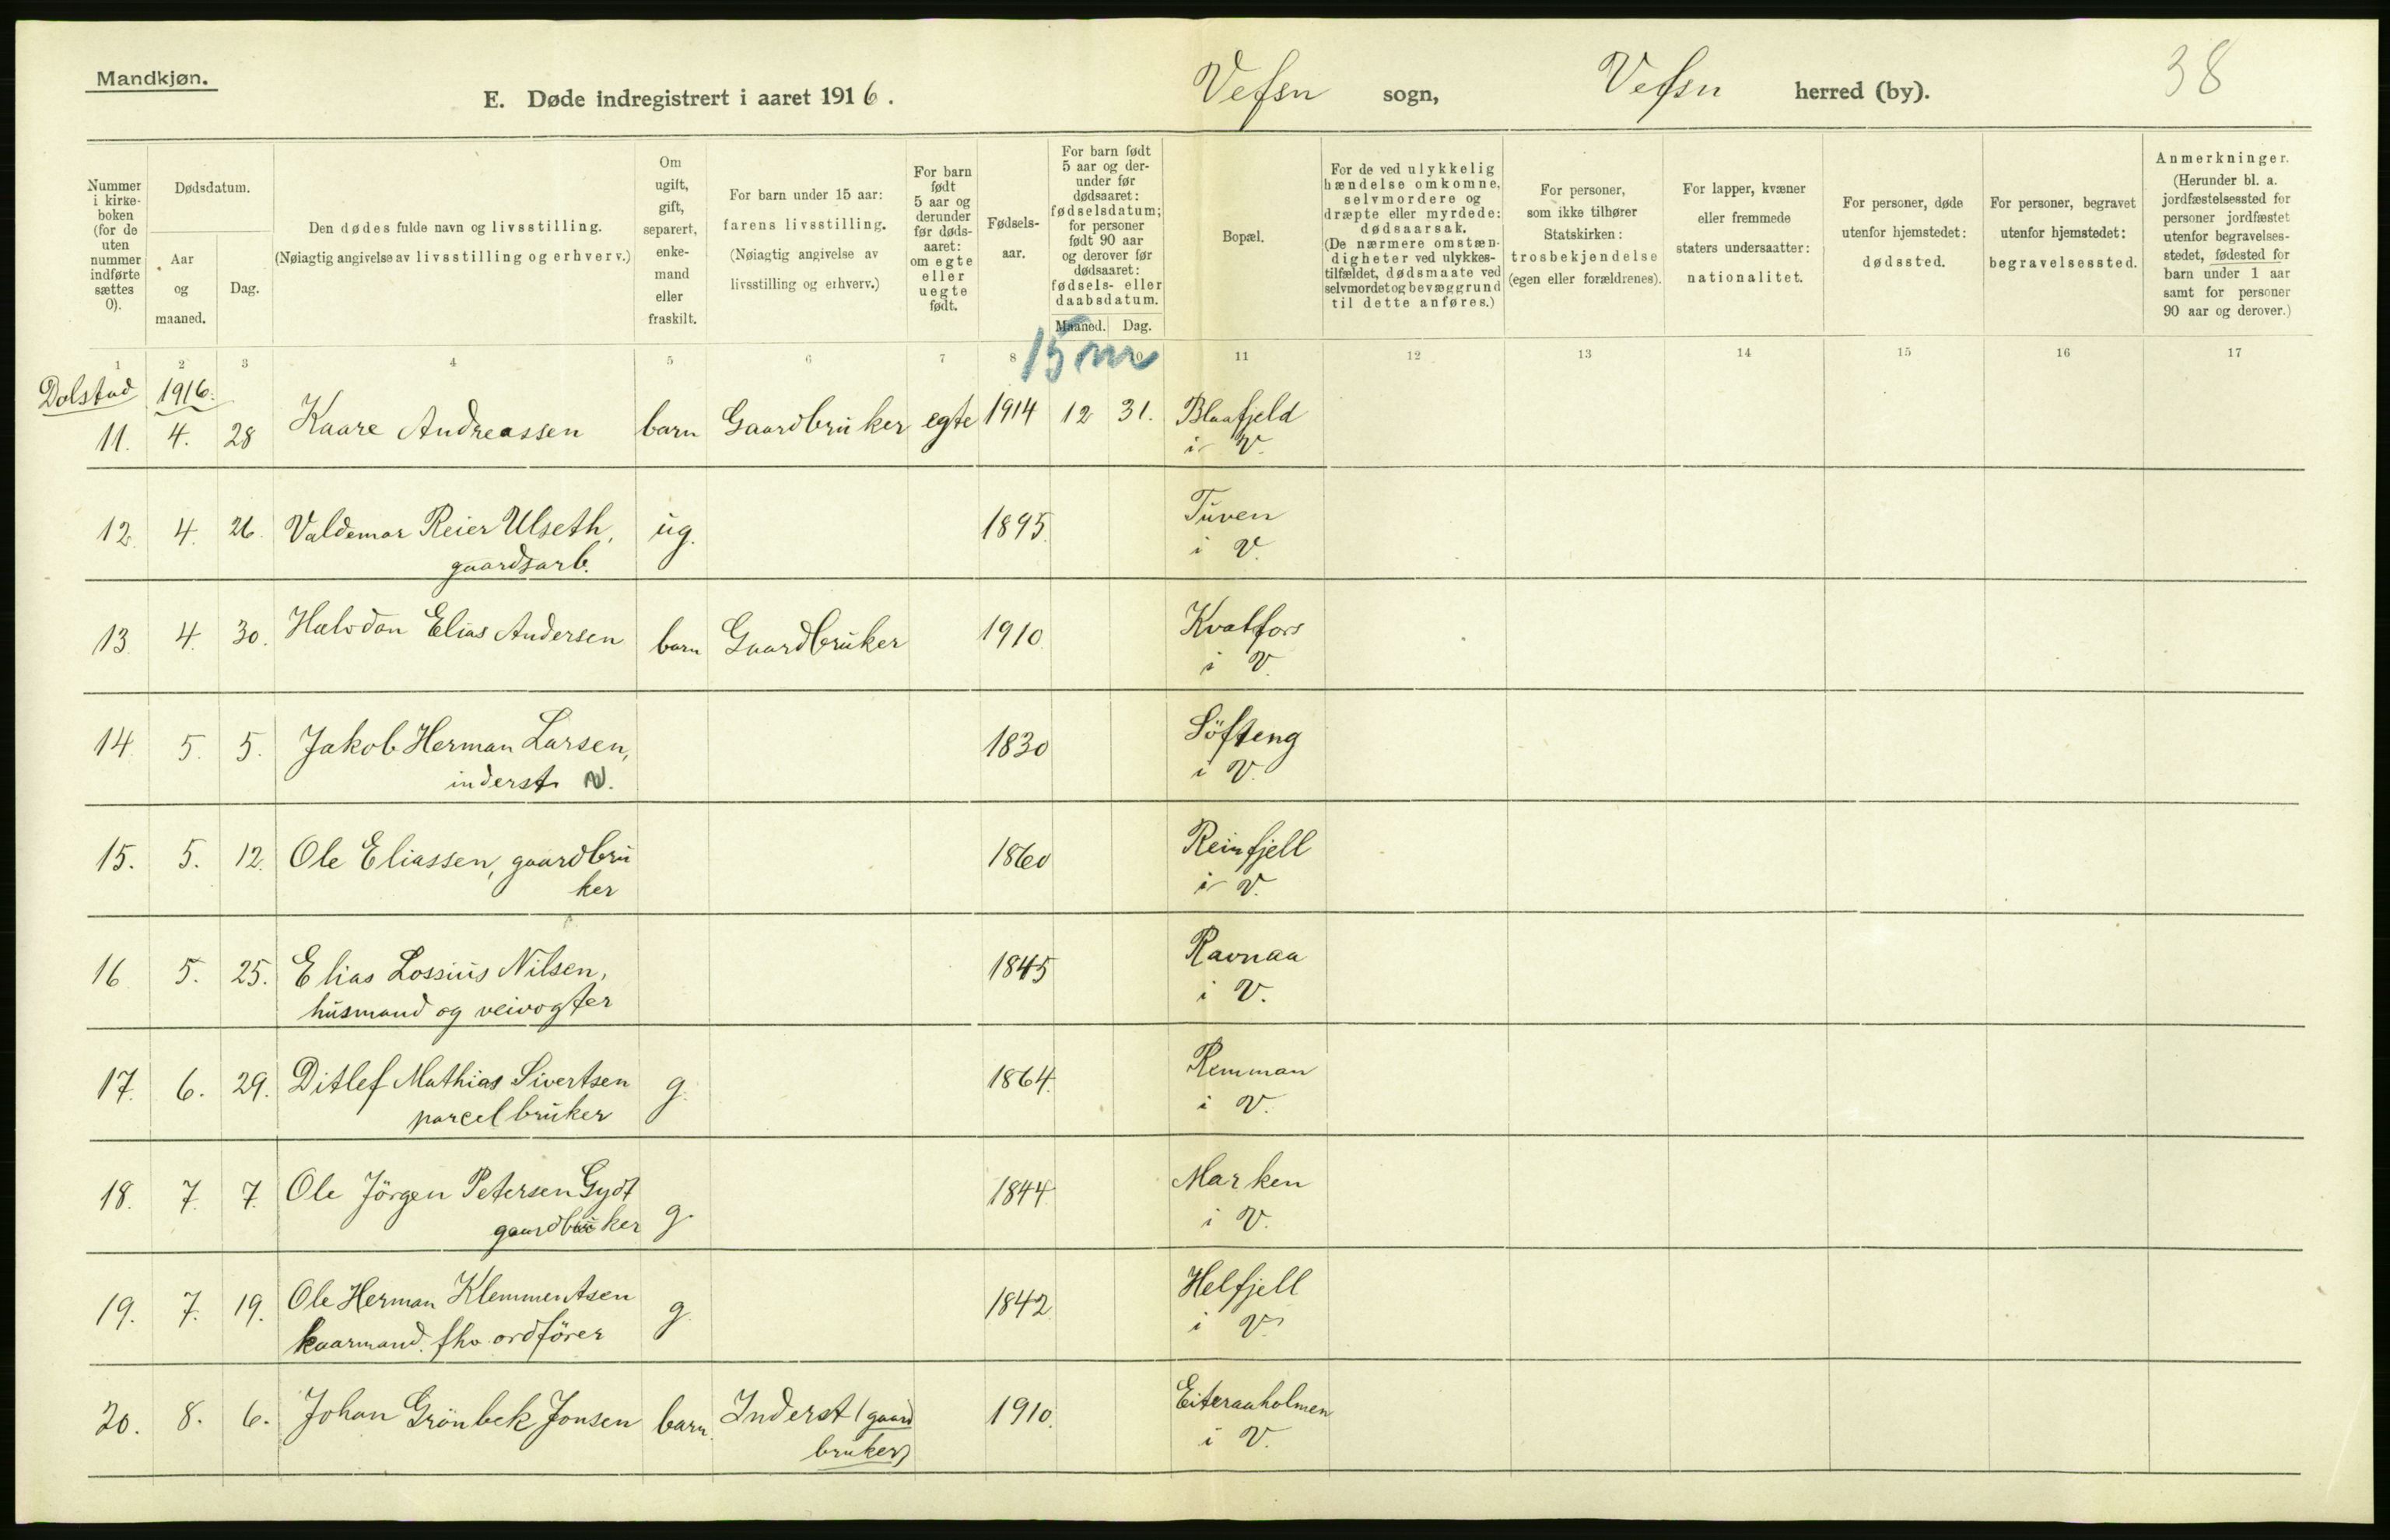 Mandkjøn.
E. Døde indregistrert i aaret 1916.
Vefsn sogn, Vefsn herred (by).
38
Nummer i kirkeboken (for de uten nummer indførte sættes 0).
Dødsdatum.
Aar og maaned.
Dag.
Den dødes fulde navn og livsstilling.
(Nøiagtig angivelse av livsstilling og erhverv.)
Om ugift, gift, separert, enkemand eller fraskilt.
For barn under 15 aar: farens livsstilling.
(Nøiagtig angivelse av livsstilling og erhverv.)
For barn født 5 aar og derunder før dødsaaret: om egte eller uegte født.
Fødselsaar.
For barn født 5 aar og derunder før dødsaaret: fødselsdatum; for personer født 90 aar og derover før dødsaaret: fødsels- eller daabsdatum.
Maaned. Dag.
Bopæl.
For de ved ulykkelig hændelse omkomne, selvmordere og dræpte eller myrdede: dødsaarsak.
(De nærmere omstændigheter ved ulykkestilfældet, dødsmaate ved selvmordet og bevæggrund til dette anføres.)
For personer, som ikke tilhører Statskirken: trosbekjendelse (egen eller forældrenes).
For lapper, kvæner eller fremmede staters undersaatter: nationalitet.
For personer, døde utenfor hjemstedet: dødssted.
For personer, begravet utenfor hjemstedet: begravelsessted.
Anmerkninger.
(Herunder bl. a. jordfæstelsessted for personer jordfæstet utenfor begravelsesstedet, fødested for barn under 1 aar samt for personer 90 aar og derover.)
1 2 3 4 5 6 7 8 10 11 12 13 14 15 16 17
15 m
Dolstad 1916.
11. 4. 28 Kaare Andreassen barn Gaardbruker egte 1914 12 31. Blaafjeld
i V.
12. 4. 26. Valdemar Reier Ulseth, ug. 1895. Tuven
gaardsarb. i V.
13. 4. 30. Halvdan Elias Andersen barn Gaardbruker 1910 Kvalfors
i V.
14. 5. 5. Jakob Herman Larsen, 1830 Söfteng
inderst i V.
15. 5. 12. Ole Eliassen, gaardbru 1860 Reinfjell
ker i V.
16 5. 25. Elias Lossius Nilsen, 1845 Ravnaa
husmand og veivogter i V.
17. 6. 29. Ditlef Mathias Sivertsen g. 1864. Remman
parcelbruker i V.
18. 7. 7. Ole Jörgen Petersen Gydt g. 1844. Marken
gaardbruker i V.
19. 7. 19. Ole Herman Klemmentsen g. 1842. Helfjell
kaarmand. fhv. ordförer i V.
20. 8. 6. Johan Grönbek Jonsen barn Inderst (gaard 1910. Eiteraaholmen
bruker) i V.